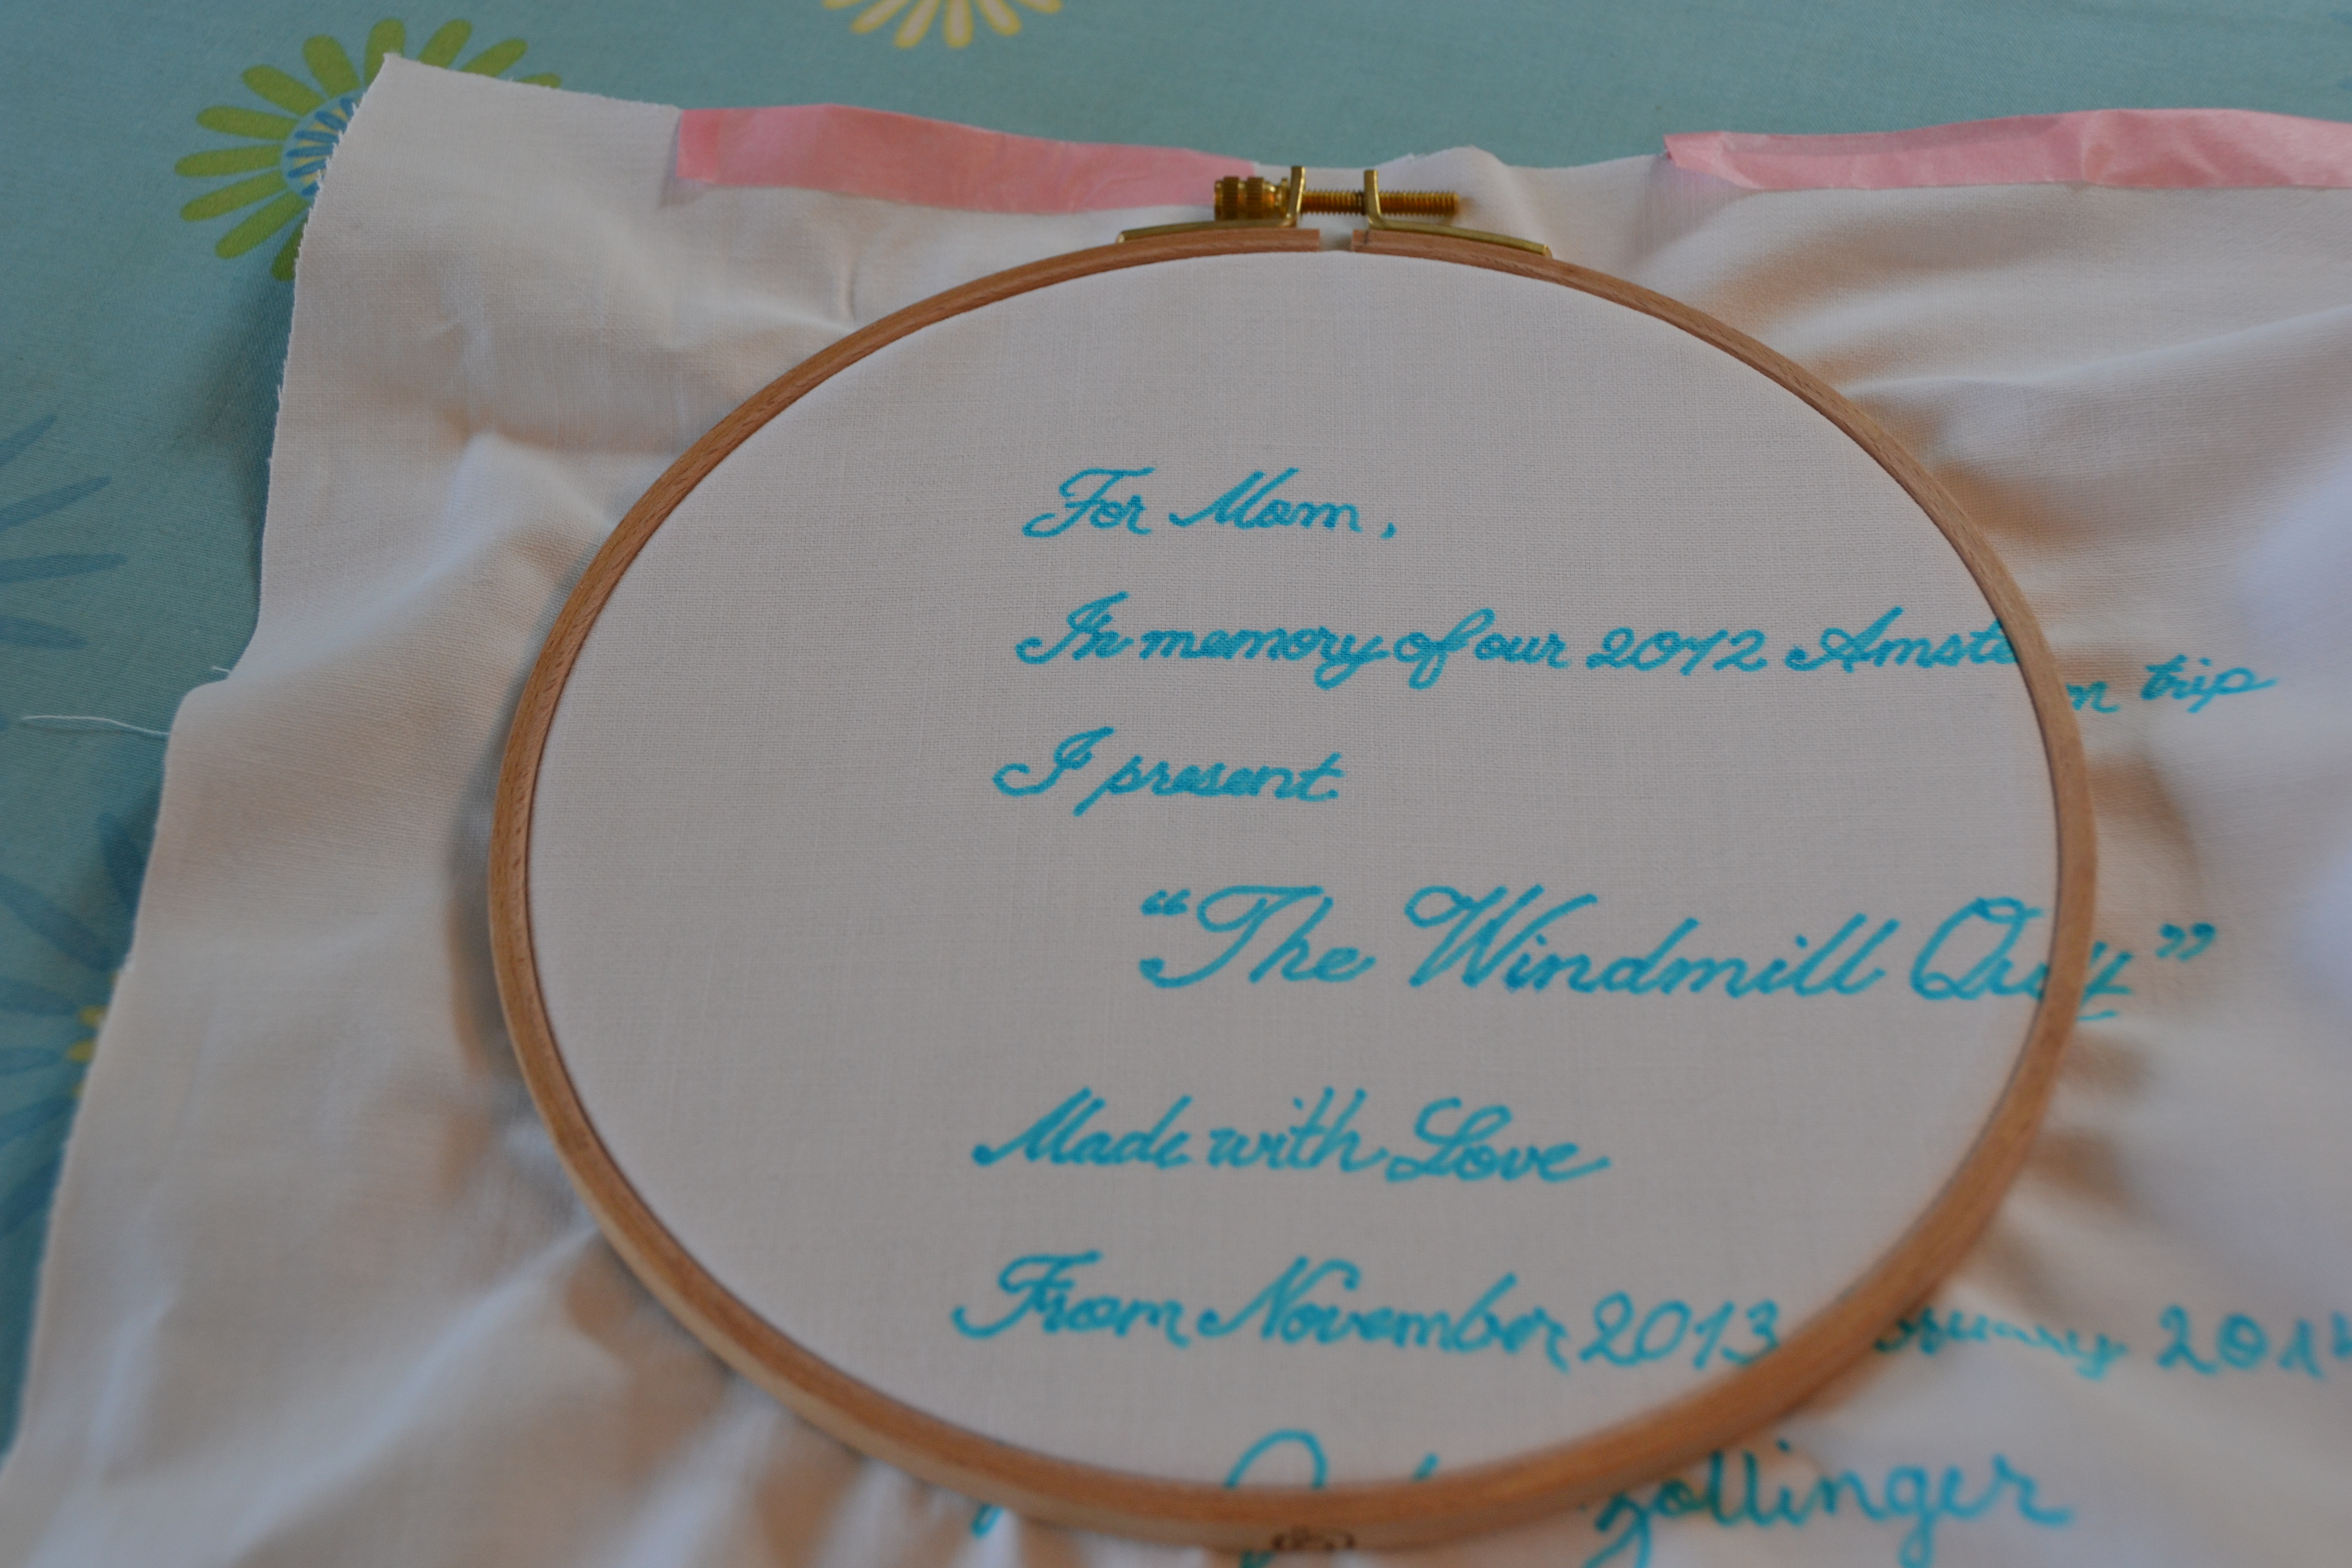 For Mom,
In memory of our 2012 trip
I present
"The Windmill Quilt"
Made with Love
From November 2013 2014
Zollinger